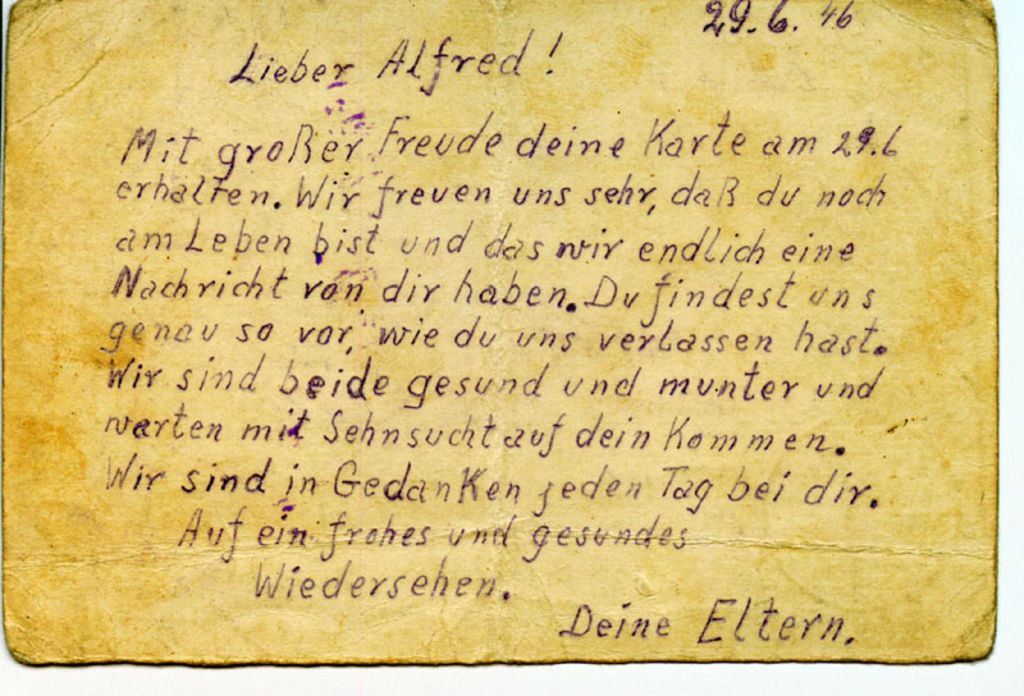 29.6. 46
Lieber Alfred!
Mit großer Freude deine Karte am 29.6
erhalten. Wir freuen uns sehr, daß du noch
am Leben bist und das wir endlich eine
Nachricht von dir haben. Du findest uns
genau so vor, wie du uns verlassen hast.
Wir sind beide gesund und munter und
warten mit Sehnsucht auf dein Kommen.
Wir sind in Gedanken jeden Tag bei dir.
Auf ein frohes und gesundes
Wiedersehen.
Deine Eltern.